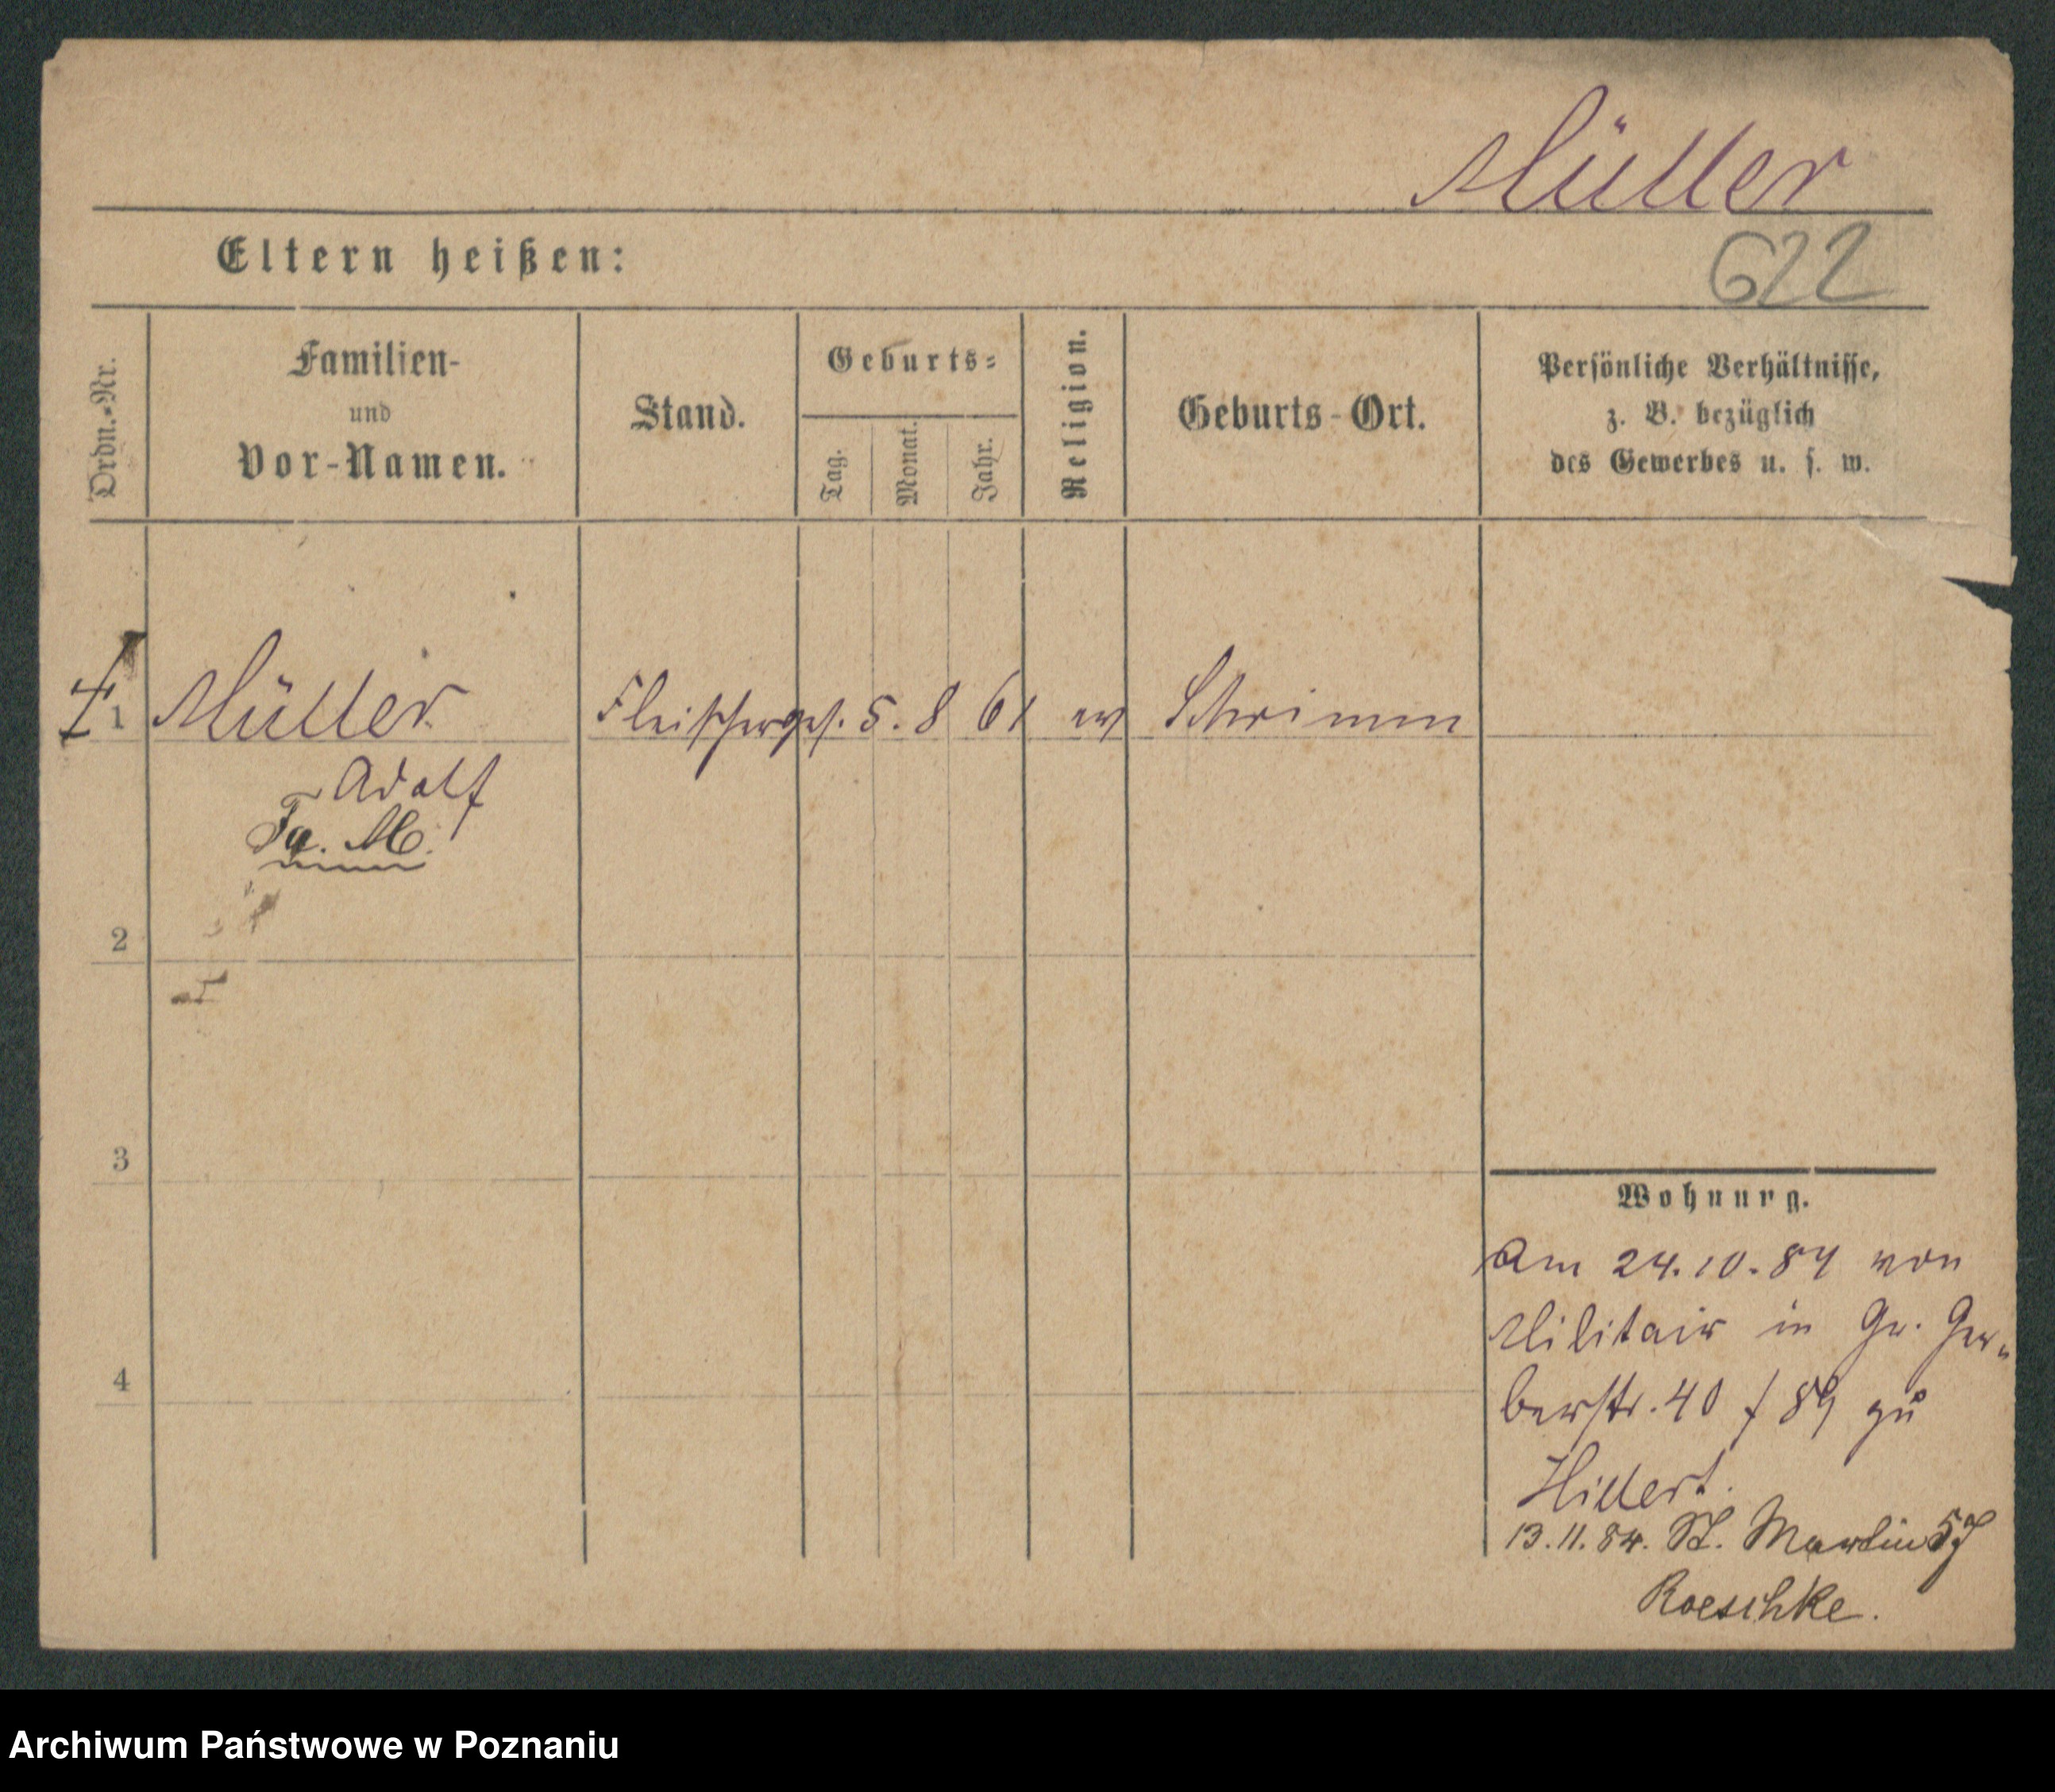 Müller
622
Eltern heißen:
Ordn.-Nr.
Familien-
und
Vor-Namen.
Stand.
Geburts-
Tag.
Monat.
Jahr.
Religion.
Geburts-Ort.
Persönliche Verhältnisse,
z. B. bezüglich
des Gewerbes u. s. w.
1 Müller Fleischerges. 5. 8 61 ev Schrimm
Adolf
Fa. M.
2
3
4
Wohnung.
Am 24.10.84 von
Militair in Gr. Ger„
berstr. 40 / 89 zu
Hillert.
13.11.84. St. Martin 57
Roeschke.
Archiwum Państwowe w Poznaniu